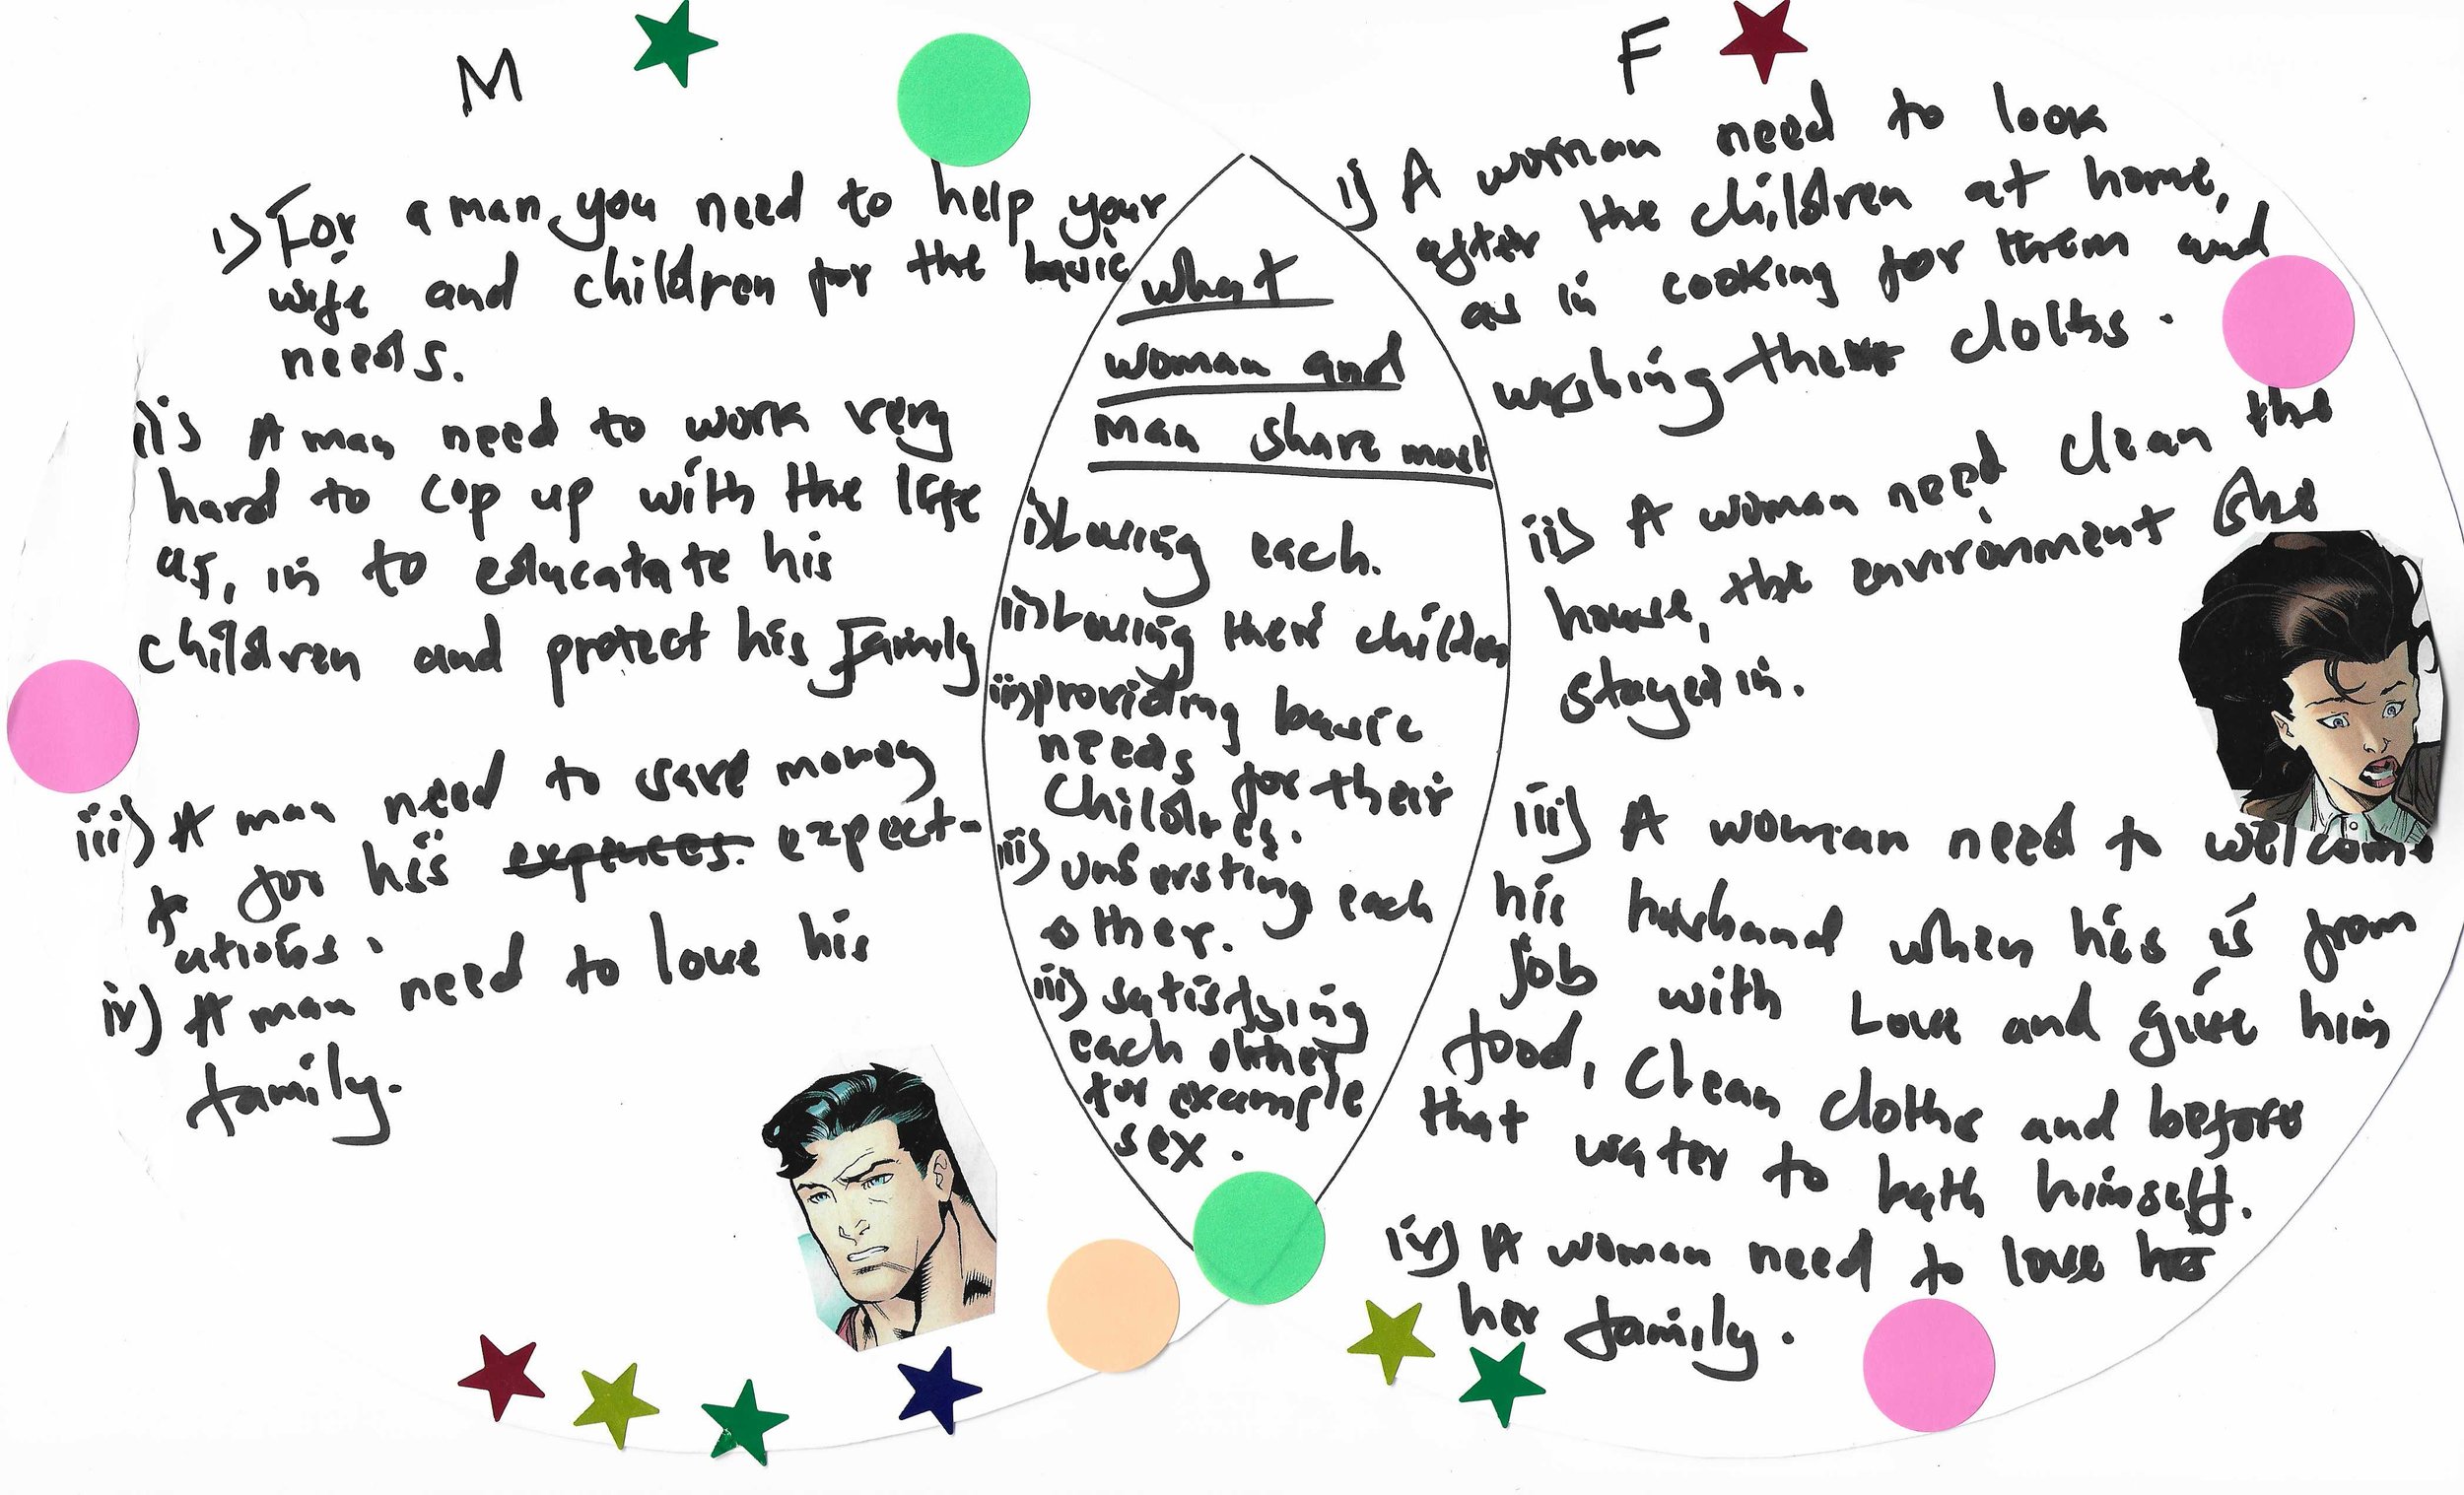 M
i) For a man, you need to help your
wife and children for the basic
needs.
ii) A man need to work very
hard to cop up with the life
as, in to educatate his
children and protect his Family
iii) A man need to save money
for his expences. expect-
ations.
iv) A man need to love his
family.
what
woman and
man share most
i) Loving each.
ii) Loving their children
iii) providing basic
needs for their
Children.
iii) understing each
other.
iii) satisfying
each other
for example
sex.
F
i) A woman need to look
after the children at home,
as in cooking for them and
washing their cloths.
ii) A woman need clean the
house, the environment she
stayed in.
iii) A woman need to welcome
his husband when his is from
job with Love and give him
food, Clean cloths and before
that water to bath himself.
iv) A woman need to love
her family.